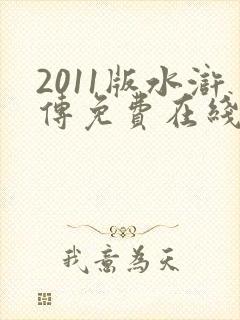 2011版水滸
傳免費在綫
我意為天